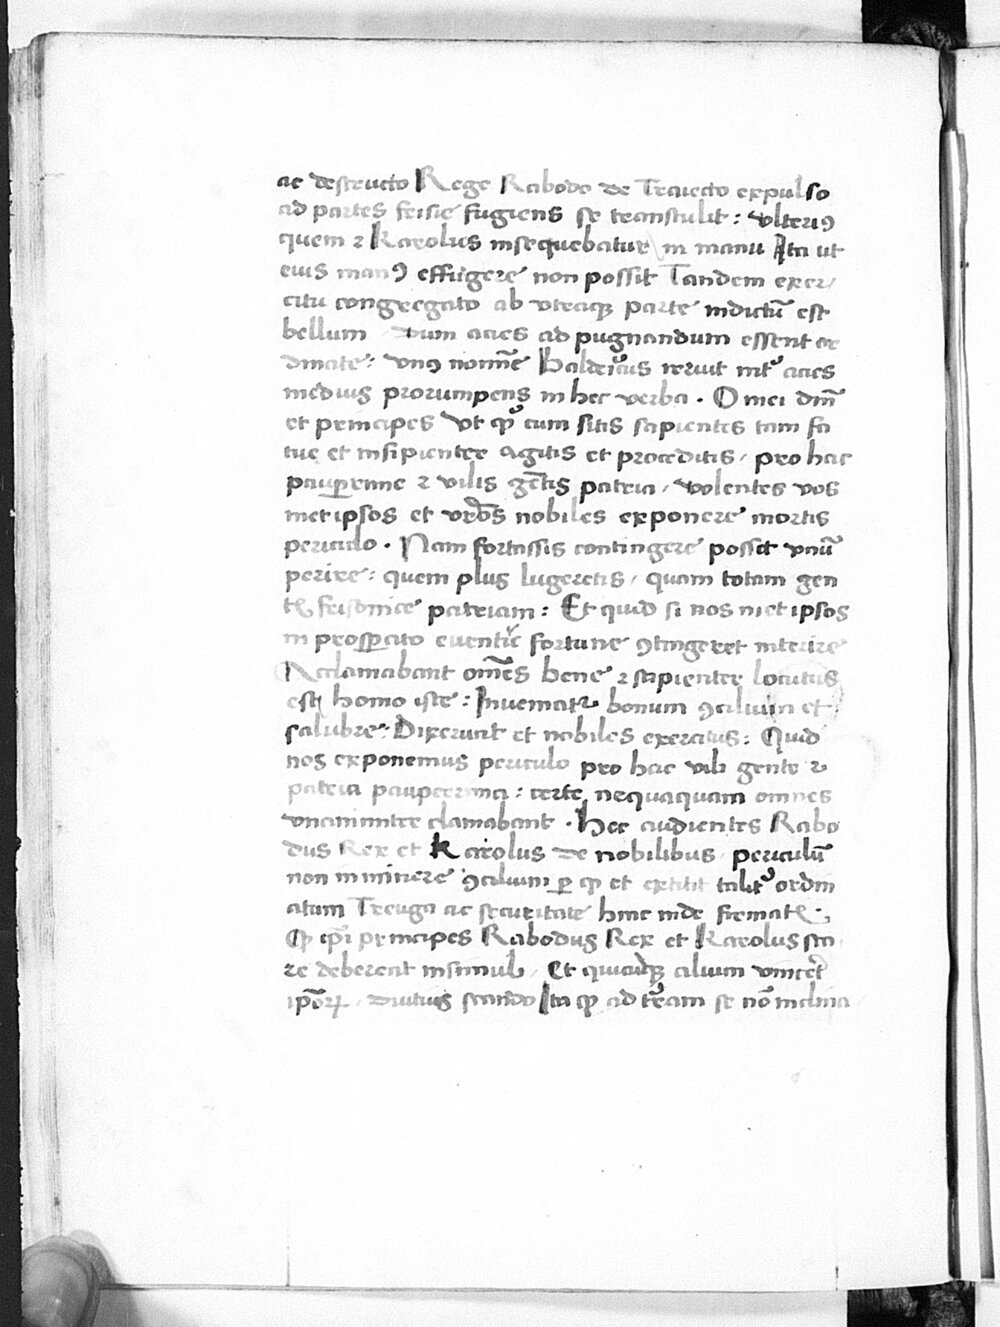 ac destructo Rege Rabodo de Traiecto expulso
ad partes frisie fugiens se transtulit : vlteriꝯ
quem ⁊ Karolus insequebatur in manu Ita ut
eius manꝯ effugere non possit Tandem exer/
citu congregato ab vtraqꝫ parte indictū est
bellum dum acies ad pugnandum essent or
dinate : vnꝯ nomīe Baldricus reruit int᷑ acies
medius prorumpens in hec verba . O mei dn̄i
et principes vt qͦ cum sitis sapientes tam fa
tue et insipienter agitis et proceditis / pro hac
pauꝑrime ⁊ vilis gētis patria / volentes vos
met ipsos et vr̄os nobiles exponere mortis
periculo . Nam fortassis contingere posset vnū
perire : quem plus lugeretis / quam totam gen
tꝭ frisonice patriam : Et quid si nos met ipsos
in prosꝑato euentu fortune ꝯtingeret interire
Acclamabant om̄es bene ⁊ sapienter locutus
est homo iste : Inueniatꝛ bonum ꝯsilium et
salubre : Dixerunt et nobiles exercitus : Quid
nos exponemus periculo pro hac vili gente ⁊
patria paupercrima : certe nequaquam omnes
vnanimiter clamabant . Hec audientes Rabo
dus Rex et Karolus de nobilibus periculū
non inminere ꝯsilium ꝑ ꝙ et extitit talit᷑ ordin
atum Treuga ac securitate hinc inde firmatꝭ :
Ꝙ ip̄i principes Rabodus Rex et Karolus sta
re deberent insimul / Et quicūqꝫ alium vincēt
ip̄oꝝ / diutius stando Ita ꝙ ad tr̄am se nō inclina